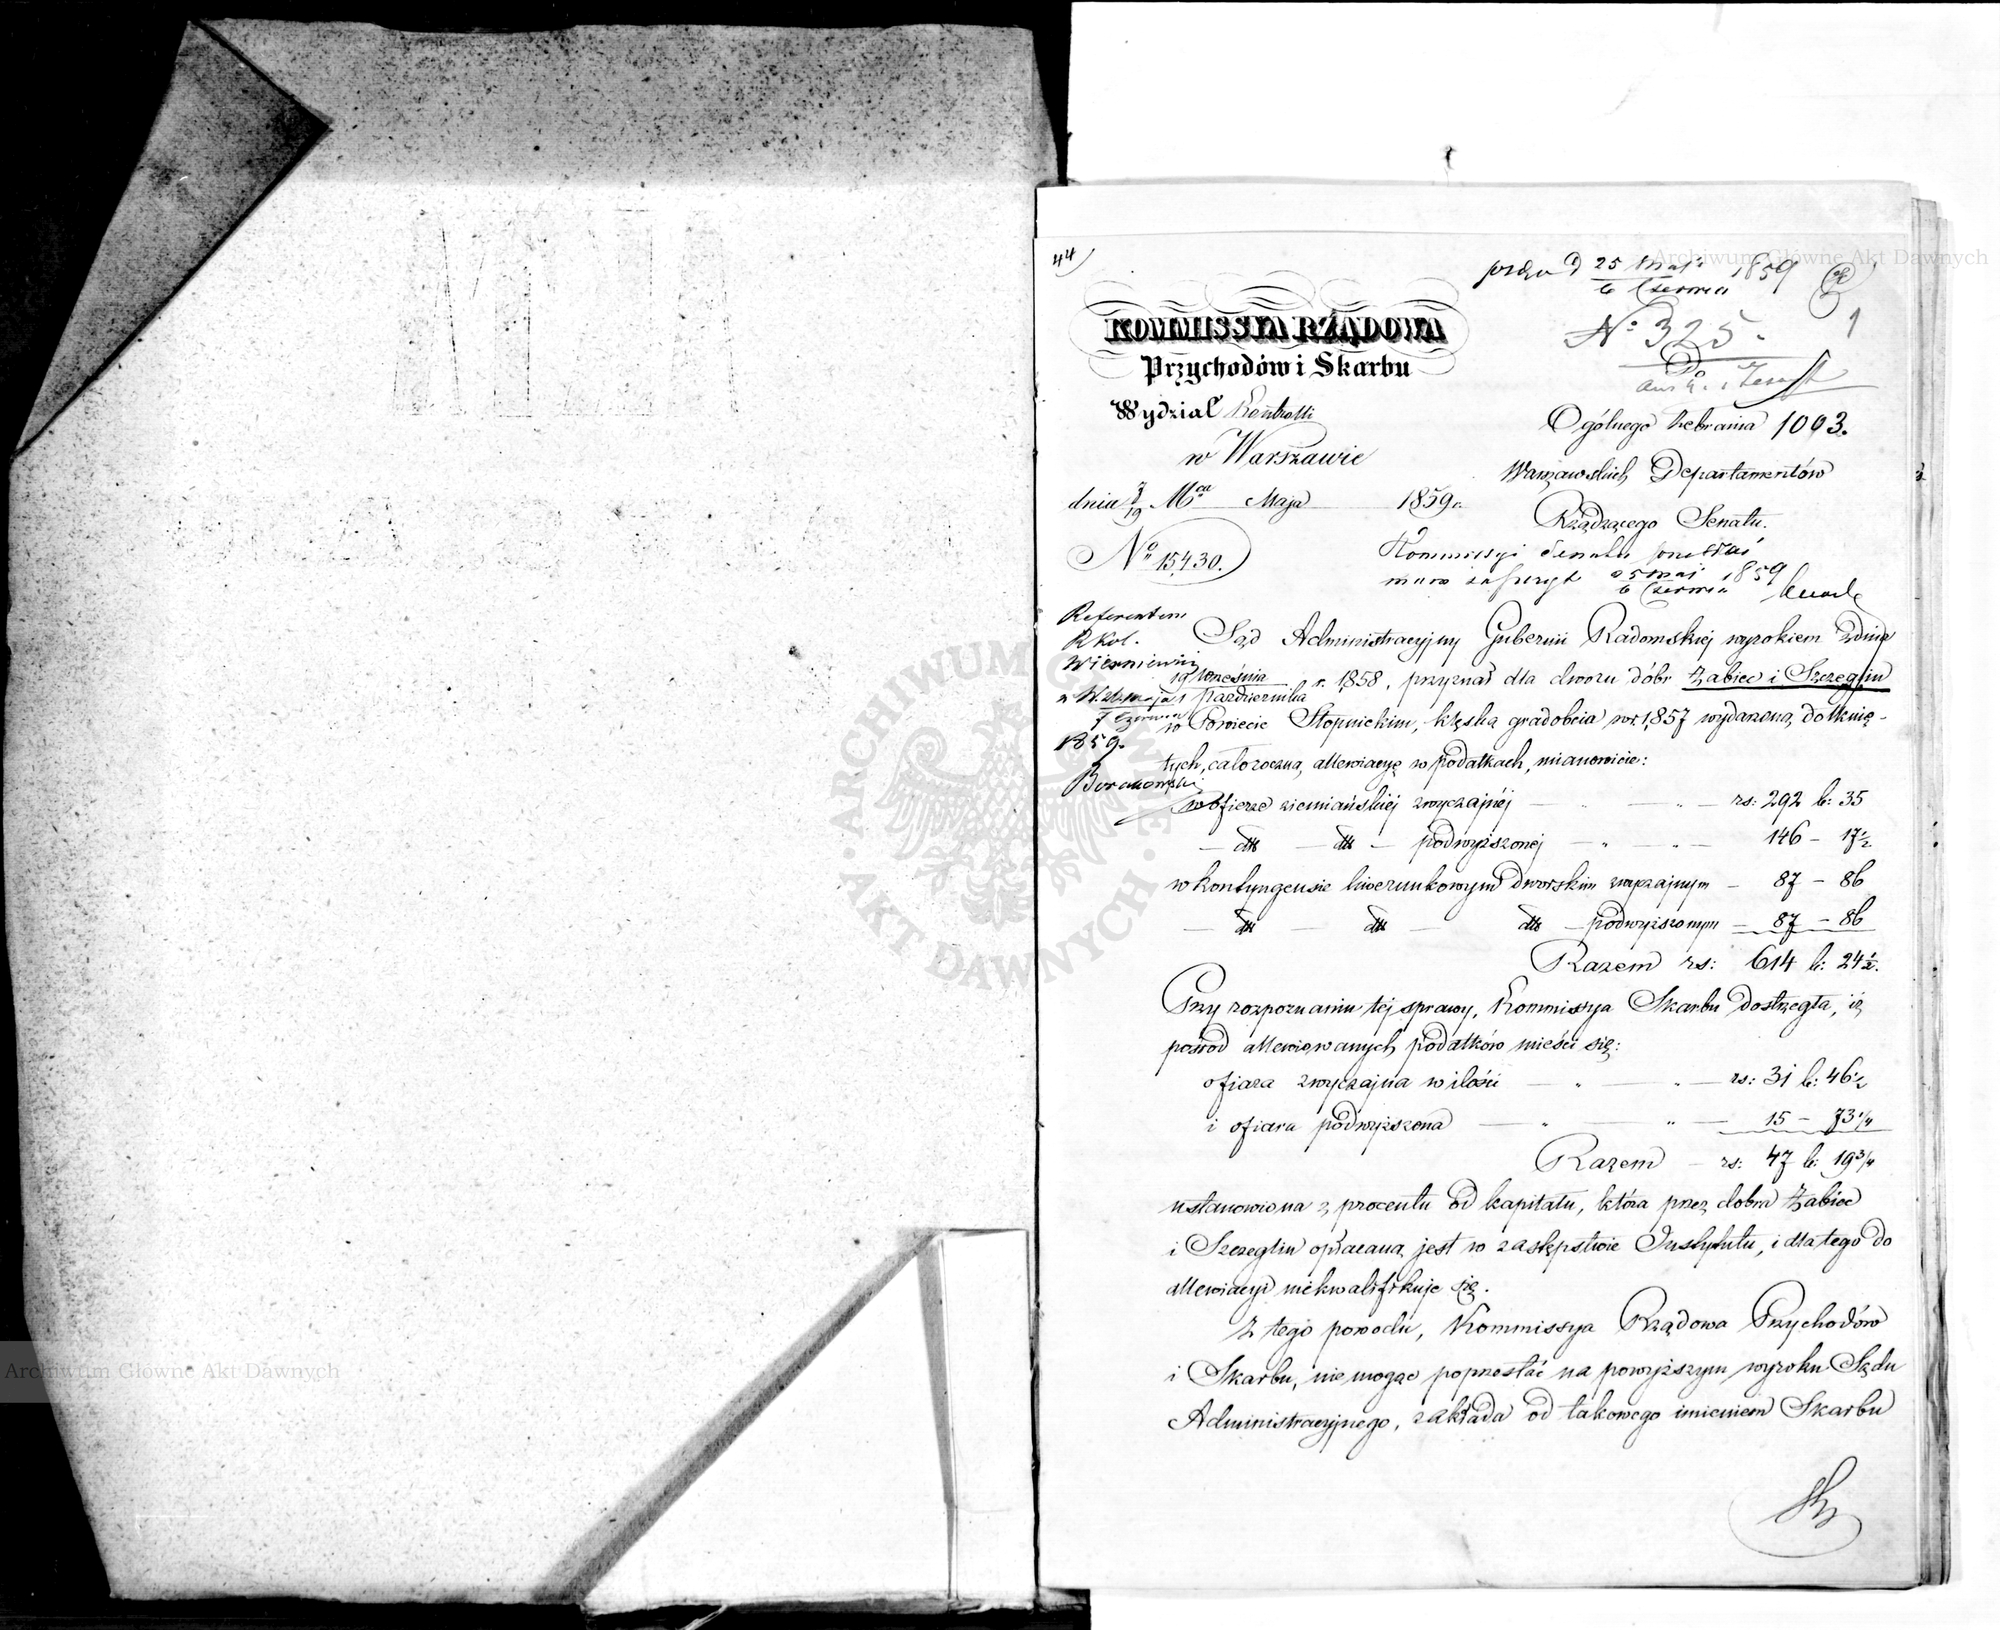 44
25 Maja
6 Czerwca 1859
1
№ 325.
KOMMISSYA RZĄDOWA
Przychodów i Skarbu
Wydział Kontrolli
w Warszawie
dnia 7/19 Mca Maja 1859 r.
№ 15,430.
Ogólnego Zebrania 1003.
Warszawskich Departamentów
Rządzącego Senatu.
Kommissyi Senatu
25 Maja
6 Czerwca 1859
Referentem
R. Kol.
1859.
Sąd Administracyjny Gubernii Radomskiej wyrokiem z dnia
19 Września
1 Października r. 1858, przyznał dla dworu dóbr Żabiec i Szczeglin
w Powiecie Stopnickim, klęską gradobicia w r. 1857 wydarzoną, dotknię-
tych, całoroczną allewiacyę w podatkach, mianowicie:
w ofierze ziemiańskiej zwyczajnej — „ — „ — rs: 292 k: 35
— dtt — dtt — podwyższonej — „ — „ — 146 – 17½
w kontyngensie liwerunkowym dworskim zwyczajnym — 87 – 86
— dtt — dtt — dtt — podwyższonym — 87 – 86
Razem rs: 614 k: 24½.
Przy rozpoznaniu tej sprawy, Kommissya Skarbu dostrzegła, iż
pośród allewiowanych podatków mieści się:
ofiara zwyczajna w ilości — „ — „ — rs: 31 k: 46½
i ofiara podwyższona — „ — „ — 15 – 73¼
Razem — rs: 47 k: 19¾
ustanowiona z procentu od kapitału, która przez dobra Żabiec
i Szczeglin opłacaną jest w zastępstwie Instytutu, i dla tego do
allewiacyi niekwalifikuje się.
Z tego powodu, Kommissya Rządowa Przychodów
i Skarbu, nie mogąc poprzestać na powyższym wyroku Sądu
Administracyjnego, zakłada od takowego imieniem Skarbu
Archiwum Główne Akt Dawnych
Archiwum Główne Akt Dawnych
ARCHIWUM GŁÓWNE · AKT DAWNYCH ·